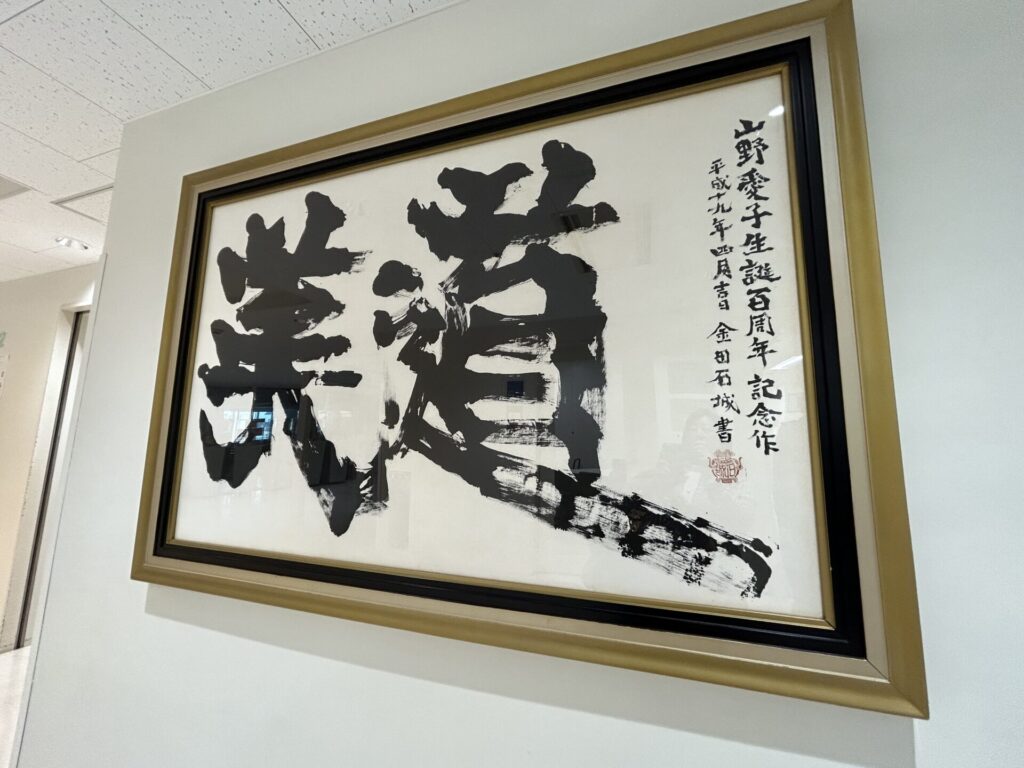 美道
山野愛子生誕百周年 記念作
平成十九年四月吉日 金田石城書